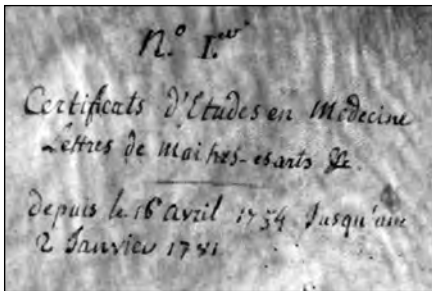 N.º I.er
Certificats d'Etudes en Medecine
Lettres de maitres-esarts &c.
depuis le 16 avril 1754 Jusqu'au
2 Janvier 1781